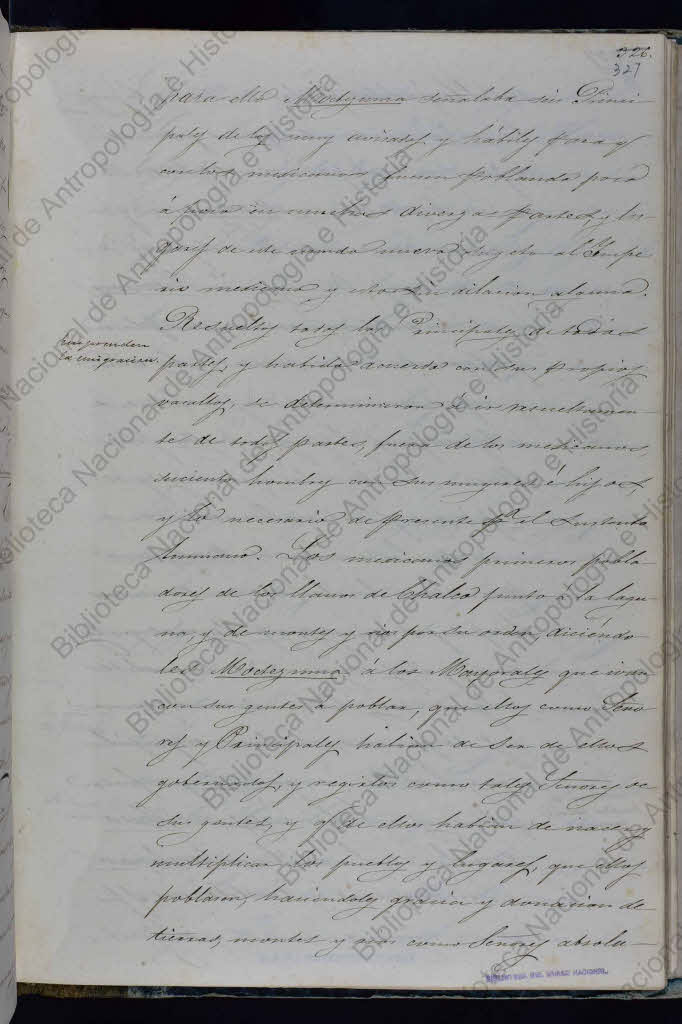 326.
327
para ello Moctezuma señalaba sus Princi-
pales de los muy avisados y hábiles para q
con los mexicanos fuesen poblando poco
á poco en muchos diversas partes, y lu-
gares de este mundo nuevo sugeto al Impe-
rio mexicano, y esto sin dilacion alguna.
Resueltos todos los Principales de todas
partes, y habido acuerdo con sus propios
vasallos, se determinaron de ir resueltamen-
te de todas partes, fuera de los mexicanos
seiscientos hombres con sus mugeres é hijos,
y lo necesario de presente pa. el sustento
humano. Los mexicanos primeros pobla-
dores de los llanos de Chalco junto á la lagu-
na, y de montes y rios por su orden, diciéndo
les Moctezuma á los Mayorales que iran
con sus gentes a poblar, que ellos como Seño-
res y Principales habian de ser de ellos
gobernados, y regidos como tales Señores de
sus gentes, y q de ellos habian de nacer y
multiplicar los pueblos y lugares, que ellos
poblasen, haciendoles gracia y donacion de
tierras, montes y rios como Señores absolu-
Emprenden
la emigracion.
BIBLIOTECA DEL MUSEO NACIONAL.
Biblioteca Nacional de Antropología e Historia